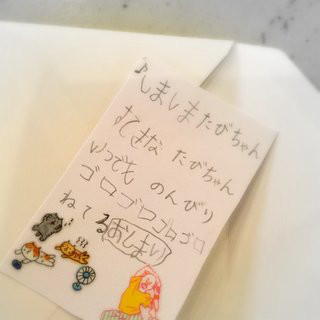 ♪しましまたびちゃん
すてきな たびちゃん
いつでも のんびり
ゴロゴロゴロゴロ
ねてる おしまい